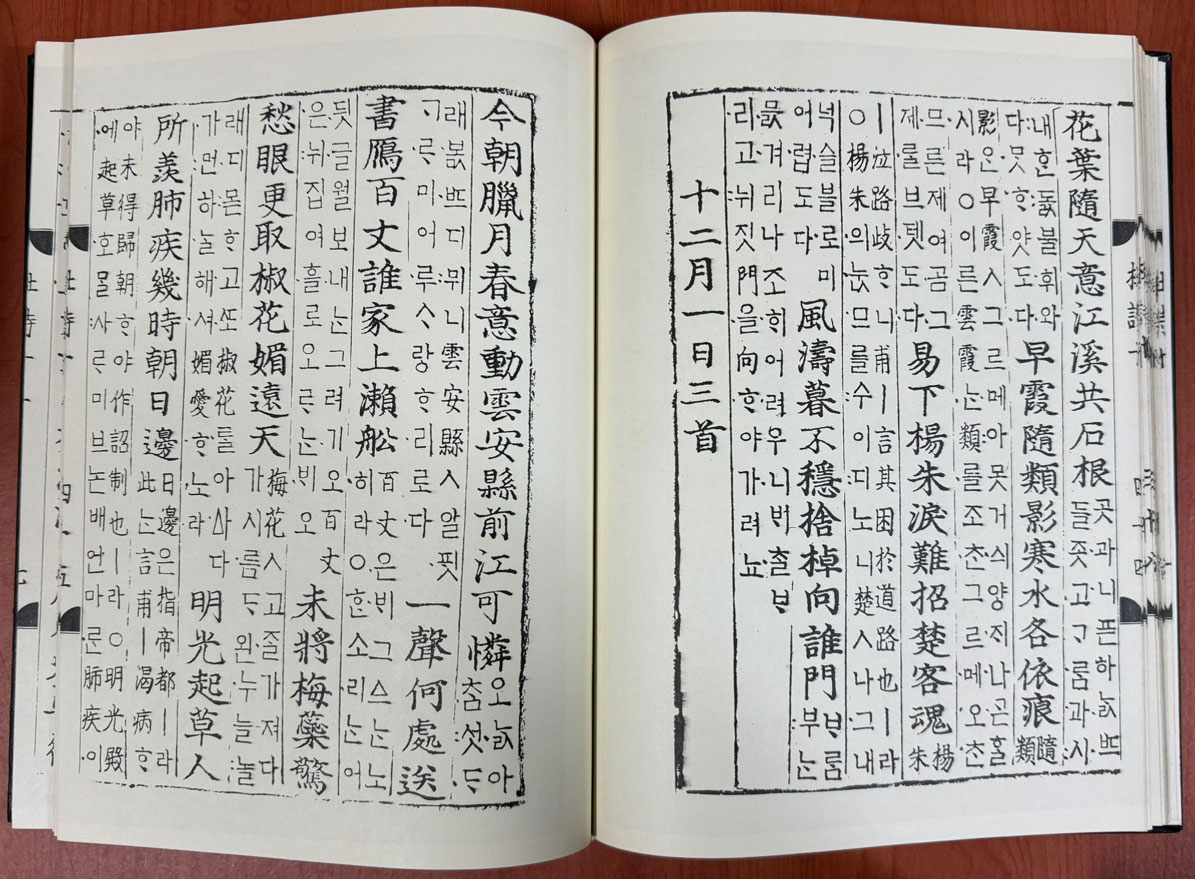 花葉隨天意江溪共石根 곳과니픈하ᄂᆞᇙᄠᅳ
들좃고ᄀᆞᄅᆞᆷ과시
내ᄒᆞᆫ돌불휘와
다ᄆᆞᆺᄒᆞ얏도다 早霞隨類影寒水各依痕 隨
類
影은早霞ㅅ그르메아못거싀양ᄌᆡ나ᄀᆞᆮᄒᆞᆯ
시라○이른雲霞ᄂᆞᆫ類ᄅᆞᆯ조ᄎᆞᆫ그르메오ᄎᆞᆫ
므른제여곰그
제ᄅᆞᆯ브텟도다 易下楊朱淚難招楚客魂 楊
朱
ㅣ泣路歧ᄒᆞ니甫ㅣ言其困於道路也ㅣ라
○楊朱의눉므를수이디노니楚人나그내
넉슬블로미
어렵도다 風濤暮不穩捨棹向誰門 ᄇᆞᄅᆞᆷ
부ᄂᆞᆫ
믌겨리나조ᄒᆡ어려우니ᄇᆡ츨ᄇᆞ
리고뉘짓門을向ᄒᆞ야가려뇨
十二月一日三首
今朝臘月春意動雲安縣前江可憐 오ᄂᆞᆳ아
ᄎᆞᆷ섯ᄃᆞ
래봆ᄠᅳ디뮈니雲安縣ㅅ알ᄑᆡᆺ
ᄀᆞᄅᆞ미어루ᄉᆞ랑ᄒᆞ리로다 一聲何處送
書鴈百丈誰家上瀨舩 百丈은ᄇᆡ그ᅀᅳᄂᆞᆫ노
히라○ᄒᆞᆫ소리ᄂᆞᆫ어
듸글월보내ᄂᆞᆫ그려기오百丈
은뉘집여흘로오ᄅᆞᄂᆞᆫᄇᆡ오 未將梅蘂驚
愁眼更取椒花媚遠天 梅花ㅅ고ᄌᆞᆯ가져다
가시름ᄃᆞ왼누늘놀
래디몯ᄒᆞ고ᄯᅩ椒花ᄅᆞᆯ아ᅀᅡ다
가먼하ᄂᆞᆯ해셔媚愛ᄒᆞ노라 明光起草人
所羨肺疾幾時朝日邊 日邊은指帝都ㅣ라
此ᄂᆞᆫ言甫ㅣ渴病ᄒᆞ
야未得歸朝ᄒᆞ야作詔制也ㅣ라○明光殿
에起草호ᄆᆞᆯ사ᄅᆞ미브논배언마ᄅᆞᆫ肺疾이